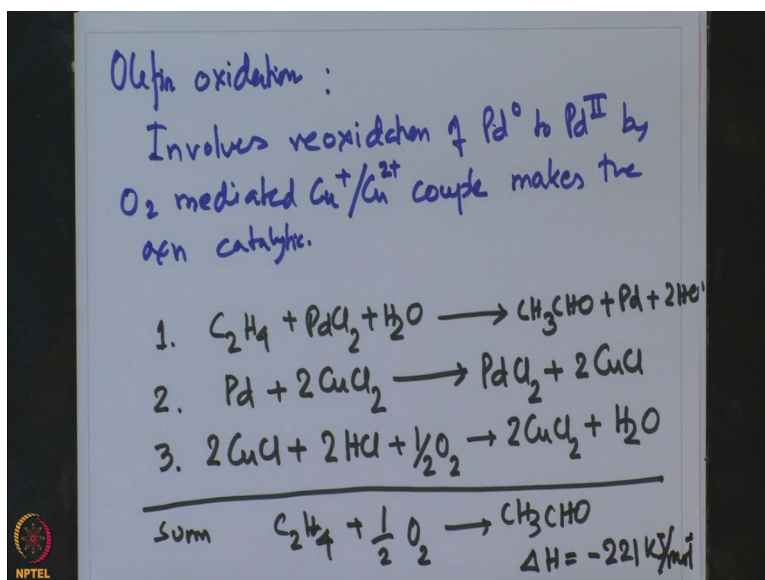 Olefin oxidation :
Involves reoxidation of Pd⁰ to Pd^II by
O₂ mediated Cu⁺/Cu²⁺ couple makes the
rxn catalytic.
1. C₂H₄ + PdCl₂ + H₂O ⟶ CH₃CHO + Pd + 2HCl
2. Pd + 2CuCl₂ ⟶ PdCl₂ + 2CuCl
3. 2CuCl + 2HCl + ½O₂ → 2CuCl₂ + H₂O
Summ C₂H₄ + 1/2 O₂ ⟶ CH₃CHO
ΔH = -221 KJ/mol
NPTEL